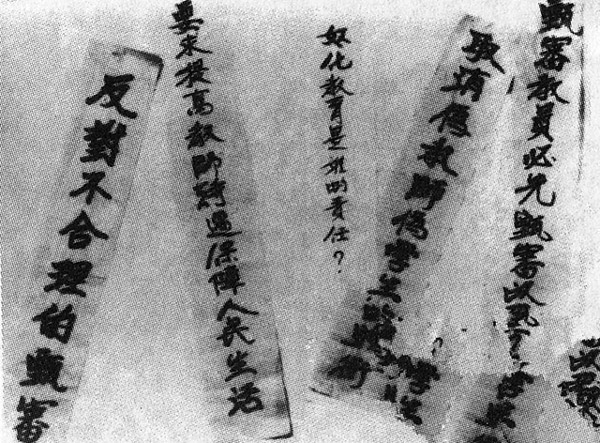 甄審教員必先甄審以至
取消偽教師偽學生的頭銜
奴化教育是誰的責任？
要求提高教師待遇保障人民生活
反對不合理的甄審